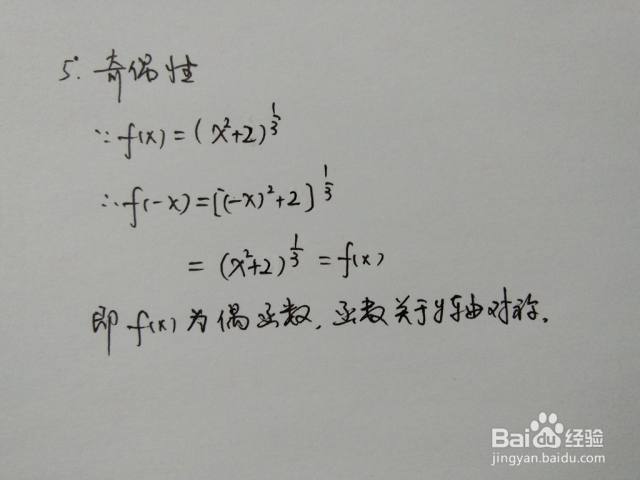 5. 奇偶性
∵f(x)=(x²+2)^{1/3}
∴f(-x)=[(-x)²+2]^{1/3}
=(x²+2)^{1/3}=f(x)
即f(x)为偶函数,函数关于y轴对称.
Baidu经验
jingyan.baidu.com